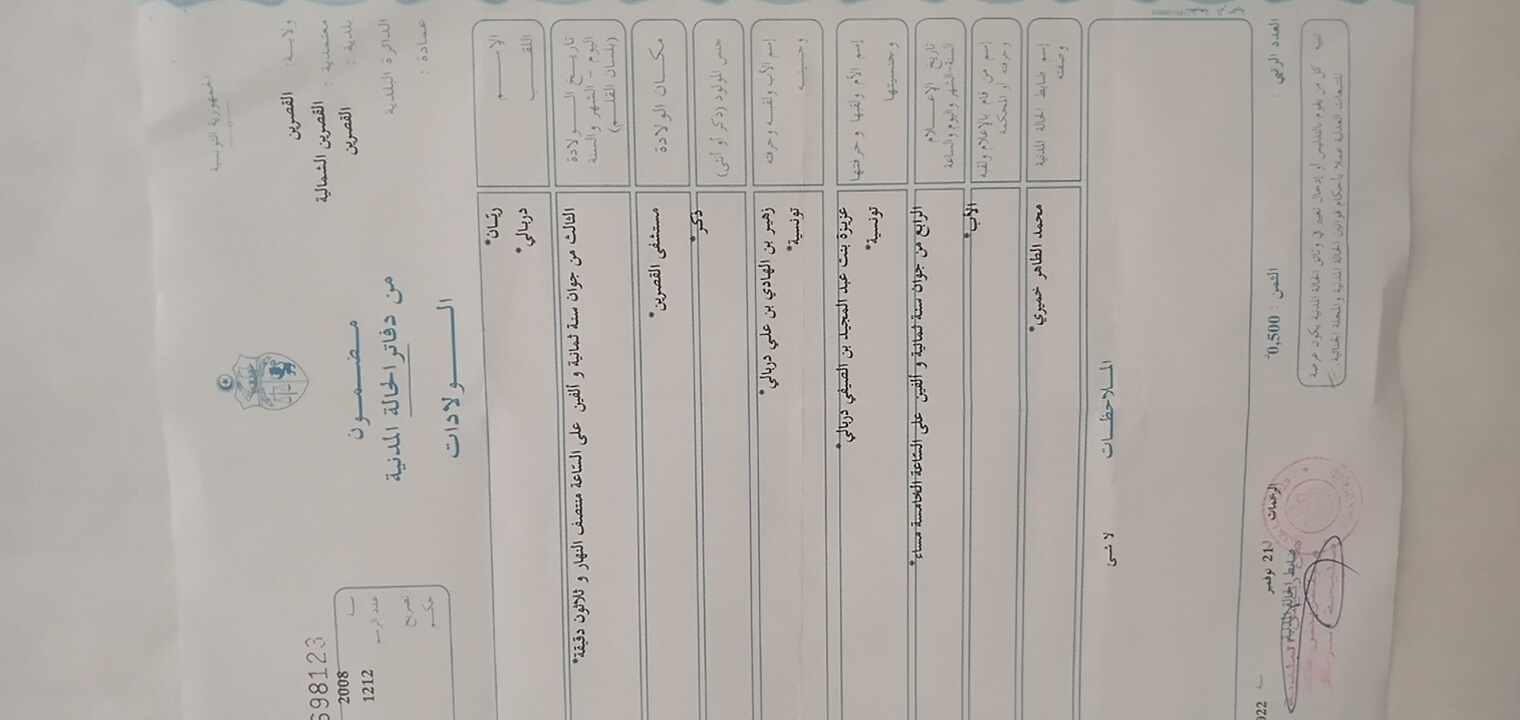 الجمهورية التونسية
ولاية: القصرين
معتمدية: القصرين الشمالية
بلدية: القصرين
الدائرة البلدية
عمادة:
مضمون
من دفاتر الحالة المدنية
الولادات
698123
سنة 2008
عدد الرسم 1212
تصريح
حكم
الإسم ريّان*
اللقب دربالي*
تاريخ الولادة
اليوم - الشهر والسنة
(بلسان القلم)
الثالث من جوان سنة ثمانية و ألفين على السّاعة منتصف النهار و ثلاثون دقيقة*
مكان الولادة مستشفى القصرين*
جنس المولود (ذكر أو أنثى) ذكر*
إسم الأب ولقبه وحرفته زهير بن الهادي بن علي دربالي*
وجنسيته تونسية*
إسم الأم ولقبها وحرفتها عزيزة بنت عبد المجيد بن الصيفي دربالي*
وجنسيتها تونسية*
تاريخ الإعلام
السنة والشهر واليوم والساعة
الرابع من جوان سنة ثمانية و ألفين على السّاعة الخامسة مساء*
إسم من قام بالإعلام ولقبه
وحرفته أو المحكمة
الأب*
إسم ضابط الحالة المدنية
وصفته
محمد الطاهر خميري*
الملاحظات
لا شىء
العدد الرتبي:
الثمن: 0,500
الرخمات في 21 نوفمبر سنة 022
ضابط الحالة المدنية
تنبيه كل من يقوم بالتدليس أو إدخال تغيير في وثائق الحالة المدنية يكون عرضة
للتتبعات العدلية عملا بأحكام قوانين الحالة المدنية والمجلة الجنائية